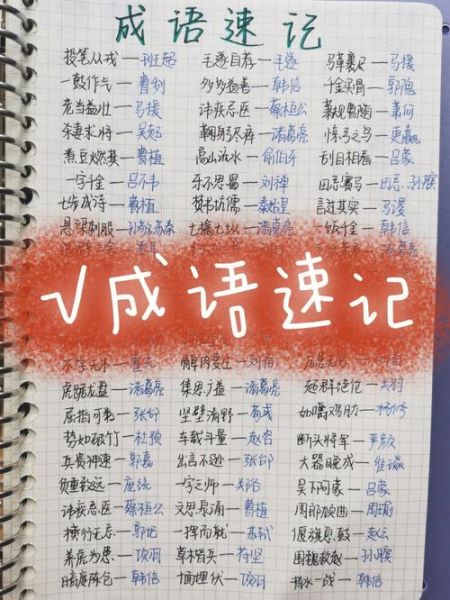 成语速记
投笔从戎—班超 毛遂自荐—毛遂 马革裹尸—马援
一鼓作气—曹刿 多多益善—韩信 千金买骨—郭隗
老当益壮—马援 讳疾忌医—蔡桓公 萧规曹随—萧何
杀妻求将—吴起 鞠躬尽瘁—诸葛亮 惊弓之鸟—更羸
煮豆燃萁—曹植 高山流水—俞伯牙 刮目相看—吕蒙
一字千金—吕不韦 乐不思蜀—刘禅 田忌赛马—田忌、孙膑
七步成诗—曹植 焚书坑儒—秦始皇 言过其实—马谡
悬梁刺股—孙敬苏秦 七擒七纵—诸葛亮 一饭千金—韩信
√成语速记
不学无术—霍光 髀肉复生—刘备
虎踞龙盘—诸葛亮 集思广益—诸葛亮 超群绝伦—关羽
屈指可数—张郃 坚壁清野—荀彧 如嚼鸡肋—杨修
势如破竹—杜预 车载斗量—赵咨 断头将军—严颜
兵贵神速—郭嘉 出言不逊—张郃 大器晚成—崔琰
负重致远—庞统 一字之师—郑谷 吴下阿蒙—吕蒙
讳疾忌医—蔡桓公 文思泉涌—曹植 周郎顾曲—周瑜
横行无忌—郭汜 一挥而就—苏轼 偃旗息鼓—赵云
养虎为患—项羽 草木皆兵—苻坚 围魏救赵—孙膑
暗度陈仓—韩信 十面埋伏—项羽 背水一战—韩信